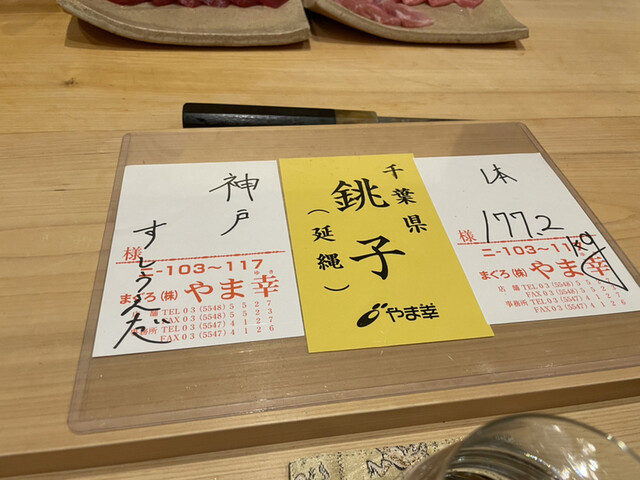 神戸
すしうえだ
様
ニ-103~117
まぐろ(株)やま幸
ゆき
店舗 TEL 03 (5548) 5527
FAX 03 (5548) 5523
事務所 TEL 03 (5547) 4128
FAX 03 (5547) 4127
千葉県
銚子
(延縄)
やま幸
本
177.2kg
様
ニ-103~117
まぐろ(株)やま幸
店舗 TEL 03 (5548) 552
FAX 03 (5548) 552
事務所 TEL 03 (5547) 4126
FAX 03 (5547) 4127